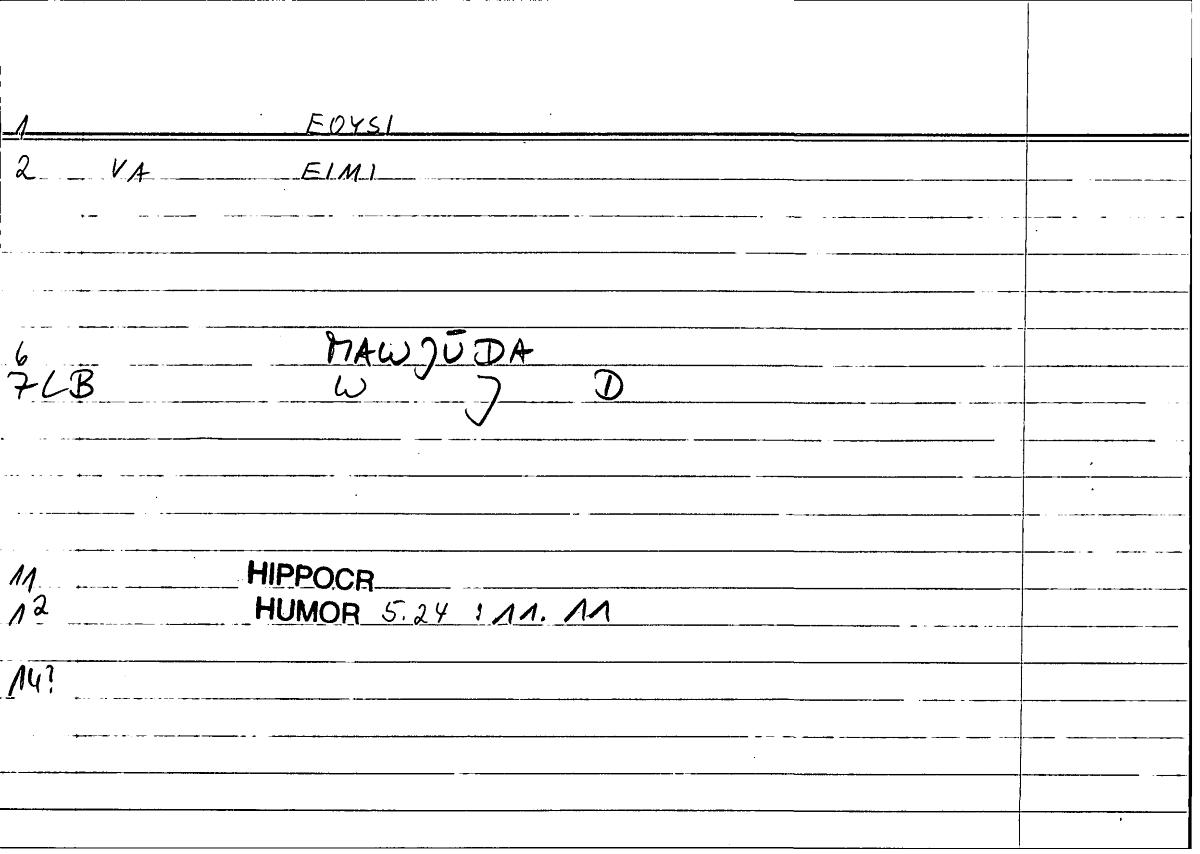 1 EOYSI
2 VA EIMI
6 MAWJŪDA
7 LB W J D
11 HIPPOCR
12 HUMOR 5.24 : 11. 11
14?